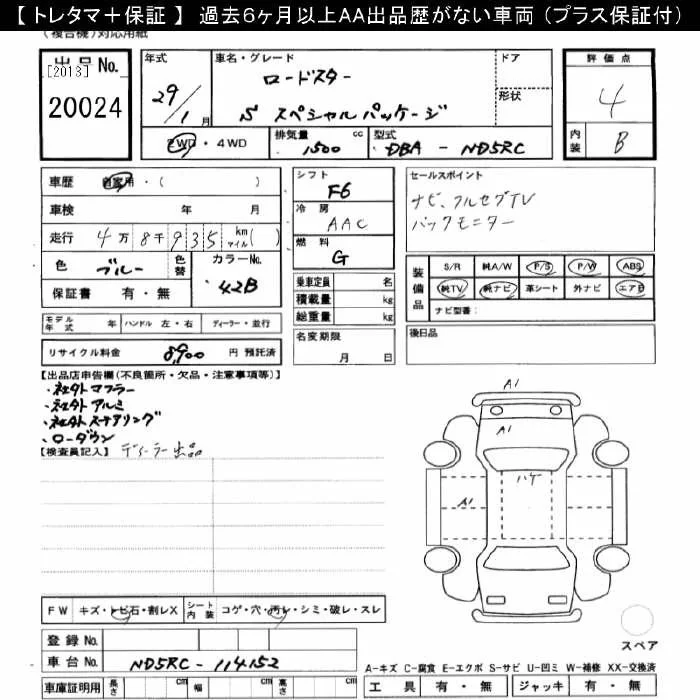 【 トレタマ＋保証 】 過去6ヶ月以上AA出品歴がない車両（プラス保証付）
(複合機)対応用紙
出品No.
[2013]
20024
年式 29/1月
車名・グレード ロードスター
S スペシャルパッケージ
ドア
形状
2WD・4WD
排気量 1500 cc
型式 DBA - ND5RC
評価点
4
内装 B
車歴 自家用・( )
車検 年 月
走行 4万8千935 km マイル( )
色 ブルー 色替 カラーNo. 42B
保証書 有・無
シフト F6
冷房 AAC
燃料 G
乗車定員 名
積載量 kg
総重量 kg
セールスポイント
ナビ、フルセグTV
バックモニター
装備品
S/R 純A/W P/S P/W ABS
純TV 純ナビ 革シート 外ナビ エアB
ナビ型番:
モデル年式 年 ハンドル 左・右 ディーラー・並行
リサイクル料金 8,900 円 預託済
名変期限 月 日
後日品
【出品店申告欄(不良箇所・欠品・注意事項等)】
・社外マフラー
・社外アルミ
・社外ステアリング
・ローダウン
【検査員記入】 ディーラー出品
A1
A1
ハゲ
A1
FW キズ・トビ石・割レX シート内装 コゲ・穴・汚レ・シミ・破レ・スレ
登録No.
車台No. ND5RC - 114152
車庫証明用 長さ cm 幅 cm 高さ cm
スペア
A-キズ C-腐食 E-エクボ S-サビ U-凹ミ W-補修 XX-交換済
工具 有・無 ジャッキ 有・無